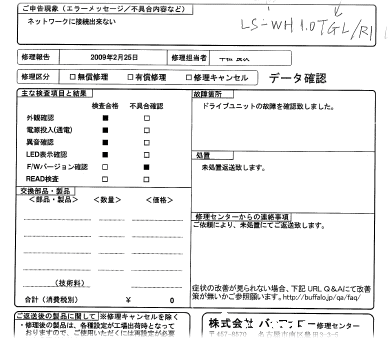 ご申告現象（エラーメッセージ／不具合内容など）
ネットワークに接続出来ない
LS-WH1.0TGL/R1
修理報告 2009年2月25日 修理担当者
修理区分 □無償修理 □有償修理 □修理キャンセル データ確認
主な検査項目と結果
検査合格 不具合確認
外観確認 ■ □
電源投入(通電) ■ □
異音確認 ■ □
LED表示確認 ■ □
F/Wバージョン確認 □ ■
READ検査 □ □
交換部品・製品
＜部品・製品＞ ＜数量＞ ＜価格＞
（技術料）
合計（消費税別） ￥ 0
故障箇所
ドライブユニットの故障を確認致しました。
処置
未処置返送致します。
修理センターからの連絡事項
ご依頼により、未処置にてご返送致します。
症状の改善が見られない場合、下記URL Q&Aにて改善
策が無いかご参照願います。http://buffalo.jp/qa/faq/
ご返送後の製品に関して ※修理キャンセルを除く
・修理後の製品は、各種設定が工場出荷時となって
おりますので、ご使用いただくには再設定が必要
株式会社 バッファロー 修理センター